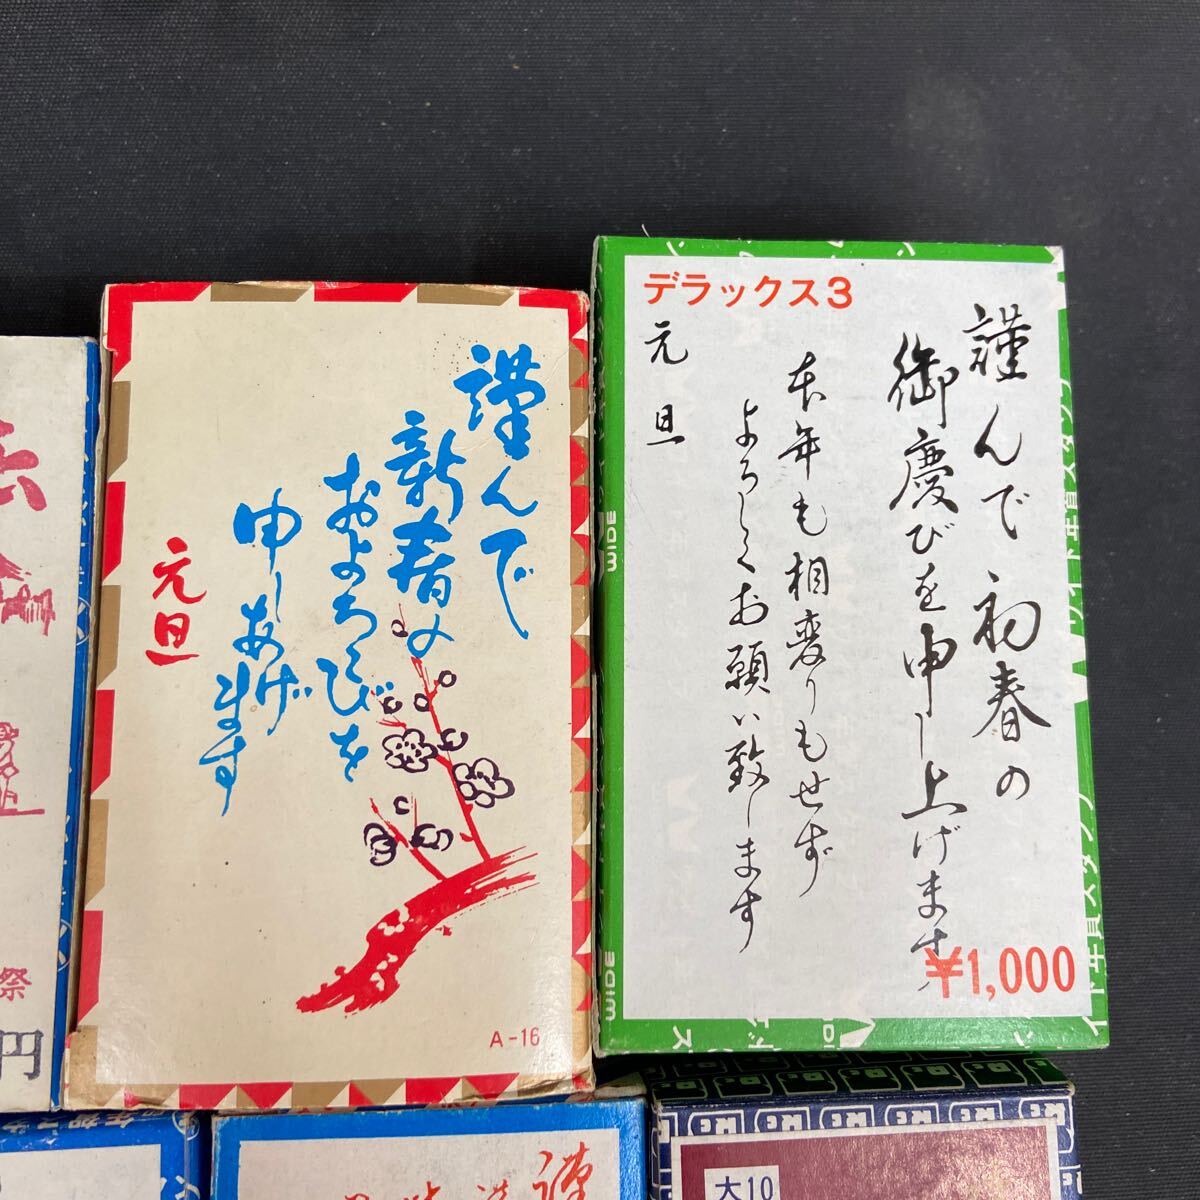 デラックス3
謹んで初春の
御慶びを申し上げます
本年も相変りもせず
よろしくお願い致します
元旦
¥1,000
WIDE
WIDE
謹んで
新春の
およろこびを
申しあげ
ます
元旦
A-16
祭
円
謹
大10